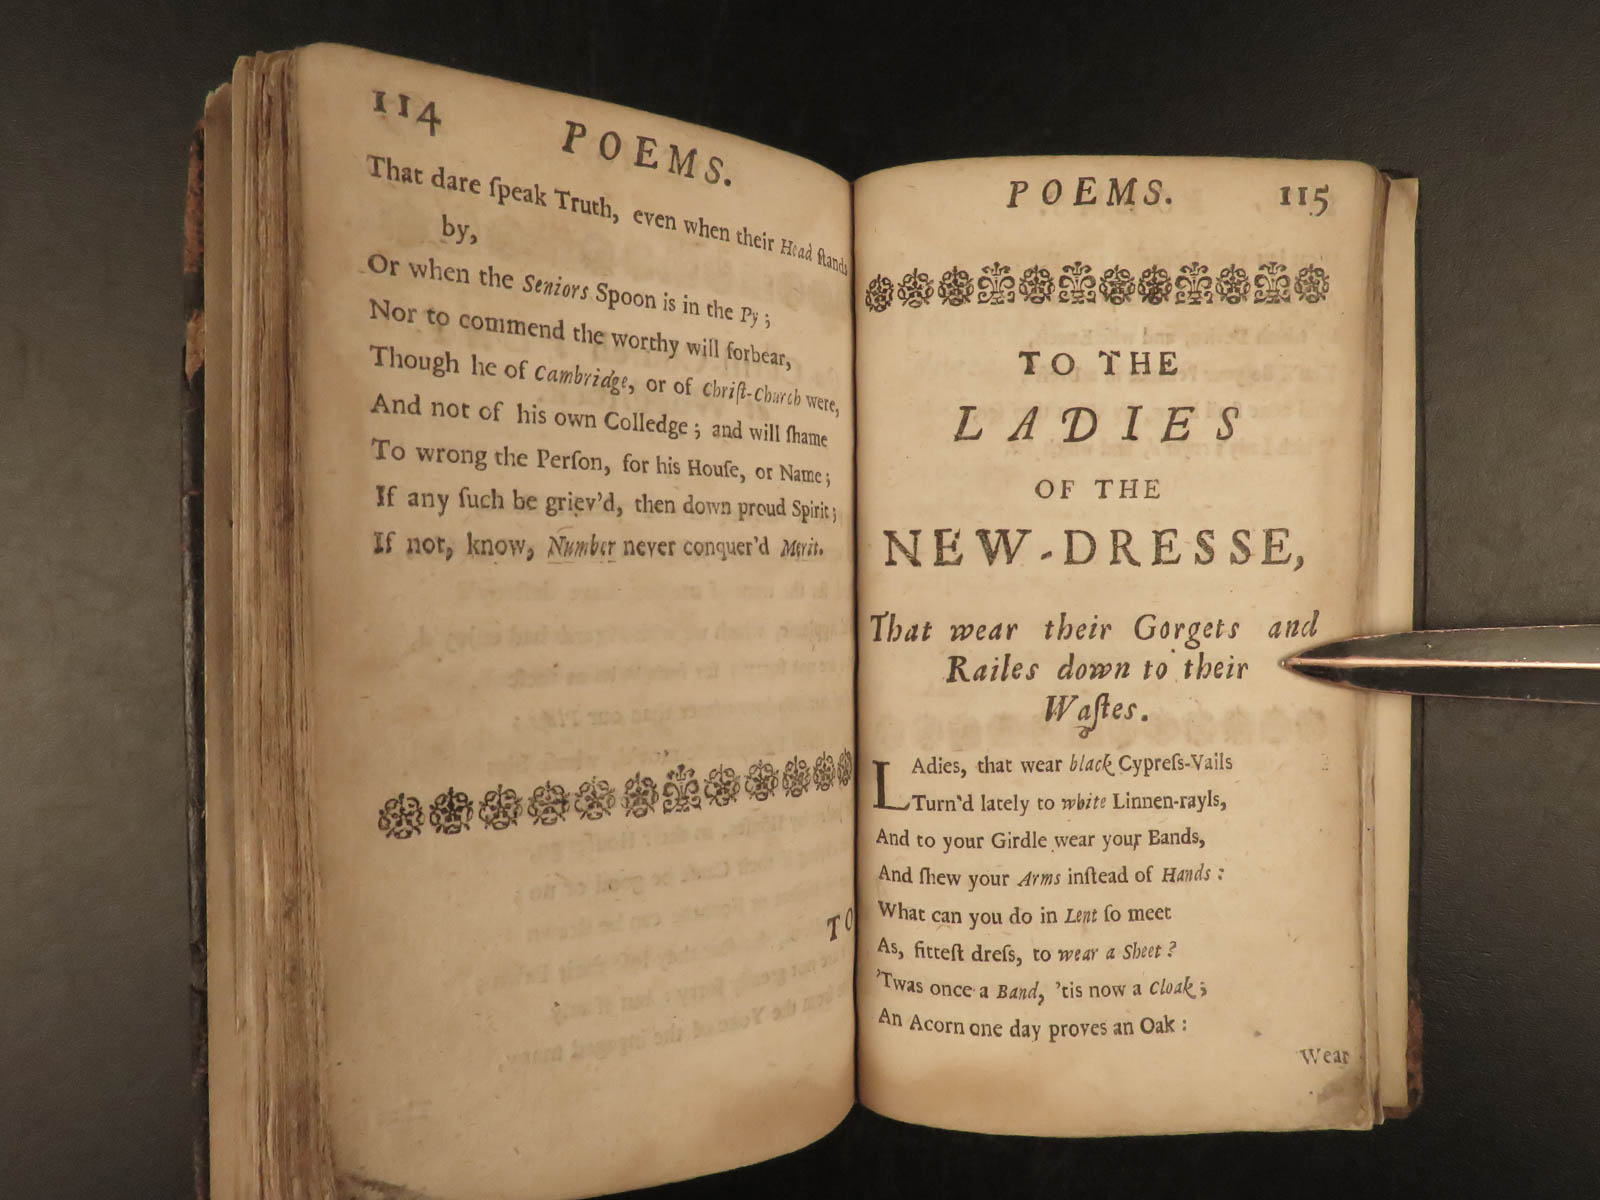 114
POEMS.
That dare ſpeak Truth, even when their Head ſtands
by,
Or when the Seniors Spoon is in the Py;
Nor to commend the worthy will forbear,
Though he of Cambridge, or of Chriſt-Church were,
And not of his own Colledge; and will ſhame
To wrong the Perſon, for his Houſe, or Name;
If any ſuch be griev'd, then down proud Spirit;
If not, know, Number never conquer'd Merit.
TO
POEMS. 115
TO THE
LADIES
OF THE
NEW-DRESSE,
That wear their Gorgets and
Railes down to their
Waſtes.
LAdies, that wear black Cypreſs-Vails
Turn'd lately to white Linnen-rayls,
And to your Girdle wear your Bands,
And ſhew your Arms inſtead of Hands:
What can you do in Lent ſo meet
As, fitteſt dreſs, to wear a Sheet?
'Twas once a Band, 'tis now a Cloak;
An Acorn one day proves an Oak:
Wear